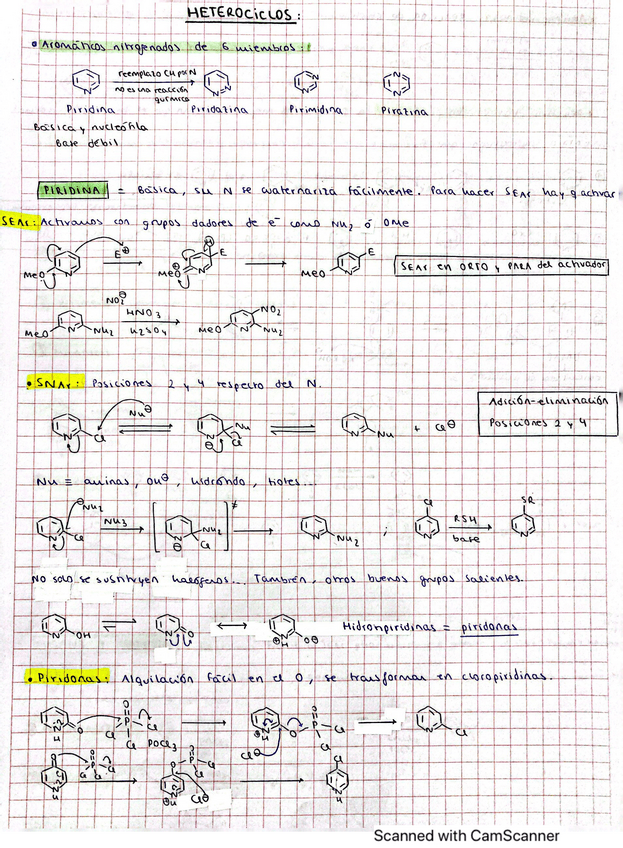 HETEROCICLOS:
• Aromáticos nitrogenados de 6 miembros:
reemplazo CH por N
no es una reacción
química
Piridina Piridazina Pirimidina Pirazina
Básica y nucleófila
Base débil
PIRIDINA = Básica, su N se cuaternariza fácilmente. Para hacer SEAr hay q activar
SEAr: Activamos con grupos dadores de e⁻ como NH₂ ó OMe
E⊕ H E E
MeO MeO⊕ MeO
SEAr en ORTO y PARA del activador
NO₂⊕
HNO₃
H₂SO₄
MeO NH₂ MeO NO₂ NH₂
• SNAr: Posiciones 2 y 4 respecto del N.
Adición-eliminación
Posiciones 2 y 4
Nu⊖ Cl Nu Cl Nu + Cl⊖
Nu ≡ aminas, OH⊖, hidróxido, tioles...
⊖NH₂ Cl NH₃ NH₂ Cl ≠ NH₂ ; Cl RSH base SR
No solo se sustituyen halógenos... También, otros buenos grupos salientes.
OH O O⊖ Hidroxipiridinas = piridonas
• Piridonas: Alquilación fácil en el O, se transforman en cloropiridinas.
O P Cl Cl Cl POCl₃ O P Cl Cl Cl⊖ Cl
O P Cl Cl Cl O P Cl Cl Cl⊖ Cl
Scanned with CamScanner